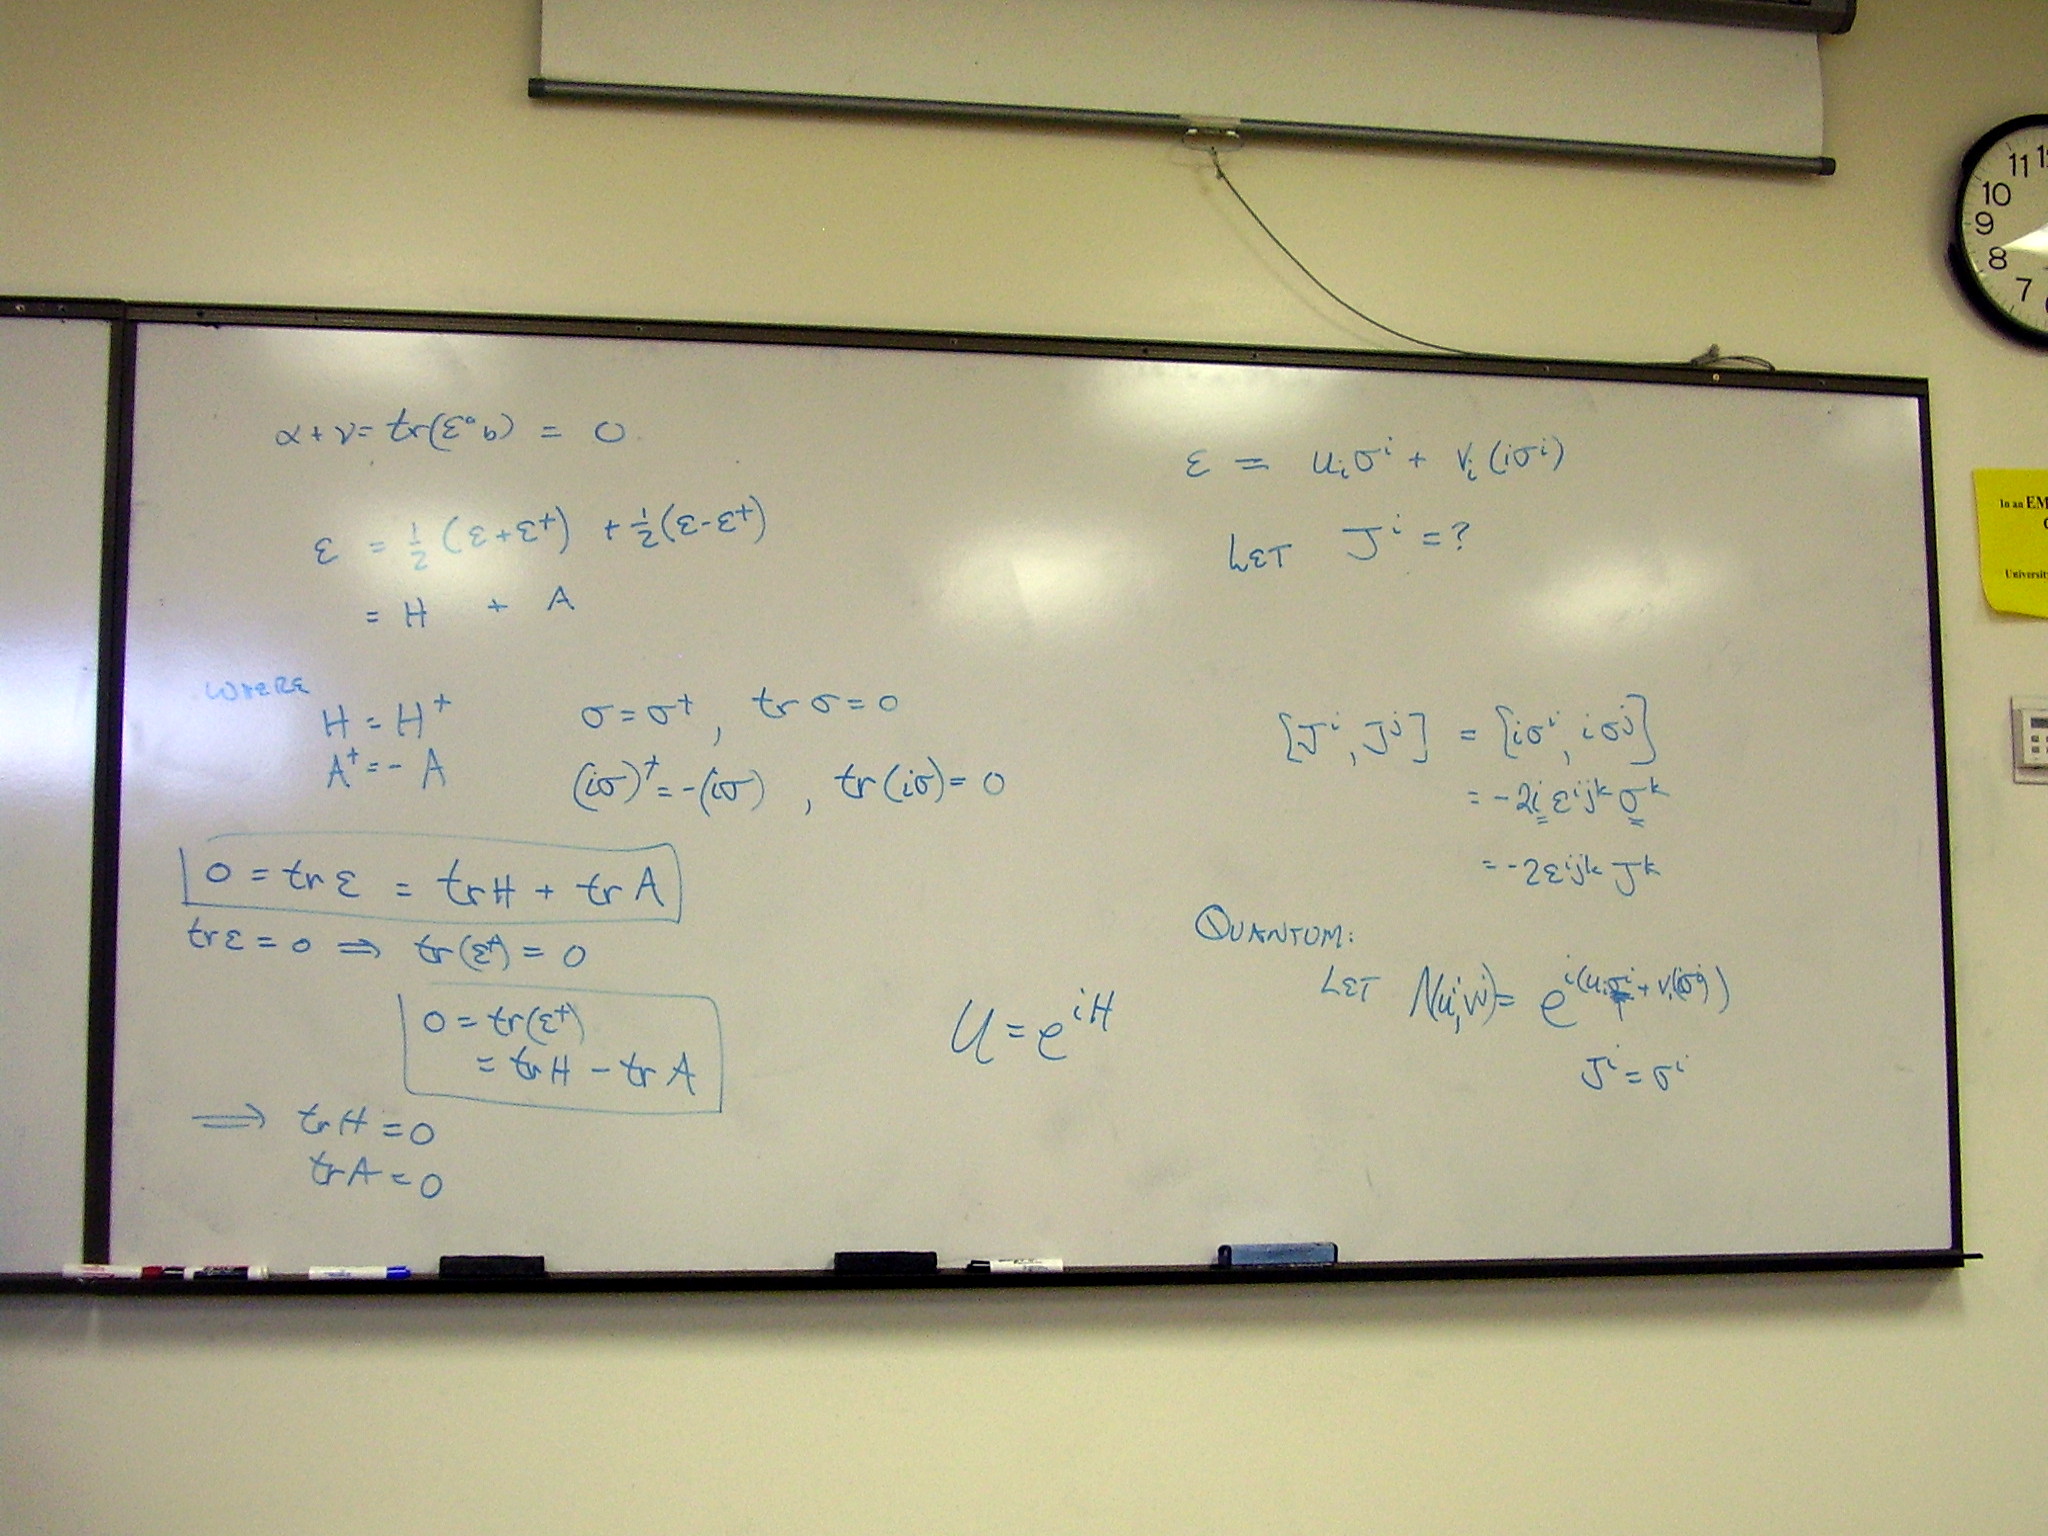 α + ν = tr(ε^a_b) = 0
ε = ½(ε+ε†) + ½(ε-ε†)
= H + A
WHERE
H = H†
A† = -A
σ = σ†, tr σ = 0
(iσ)† = -(iσ), tr(iσ) = 0
0 = tr ε = tr H + tr A
tr ε = 0 ⇒ tr(ε†) = 0
0 = tr(ε†)
= tr H - tr A
⇒ tr H = 0
tr A = 0
U = e^{iH}
ε = u_i σ^i + v_i (iσ^i)
LET J^i = ?
[J^i, J^j] = [iσ^i, iσ^j]
= -2i ε^{ijk} σ^k
= -2ε^{ijk} J^k
QUANTUM:
LET
J^i = σ^i
11
10
9
8
7
In an EM
University